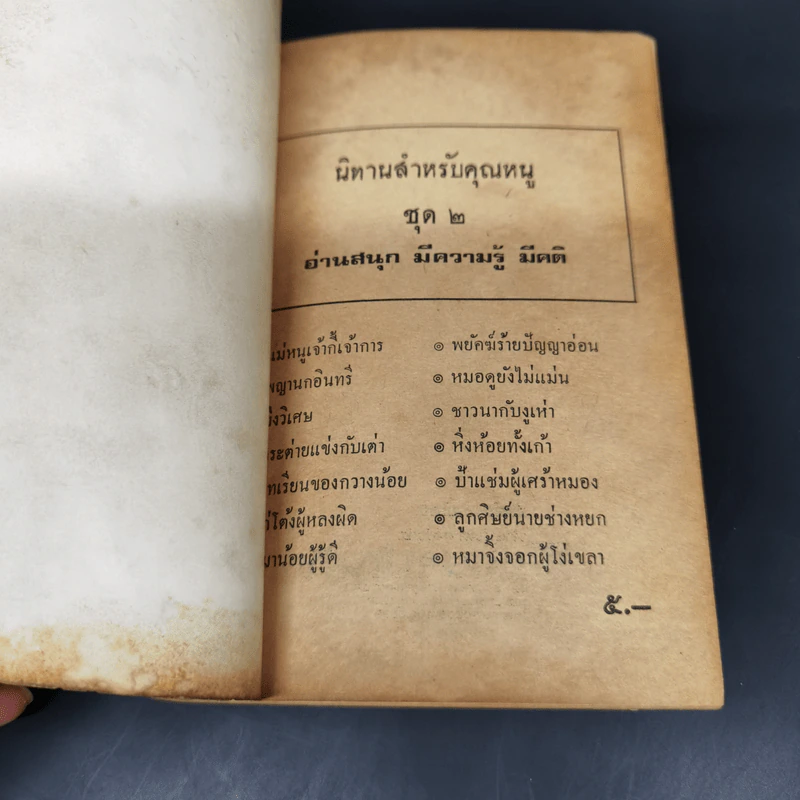 นิทานสำหรับคุณหนู
ชุด ๒
อ่านสนุก มีความรู้ มีคติ
แม่หนูเจ้ากี้เจ้าการ ๏ พยัคฆ์ร้ายปัญญาอ่อน
พญานกอินทรี ๏ หมอดูยังไม่แม่น
วิเศษ ๏ ชาวนากับงูเห่า
ระต่ายแข่งกับเต่า ๏ หิ่งห้อยทั้งเก้า
ทเรียนของกวางน้อย ๏ ป้าแช่มผู้เศร้าหมอง
โต้งผู้หลงผิด ๏ ลูกศิษย์นายช่างหยก
น้อยผู้รู้ดี ๏ หมาจิ้งจอกผู้โง่เขลา
๕.—